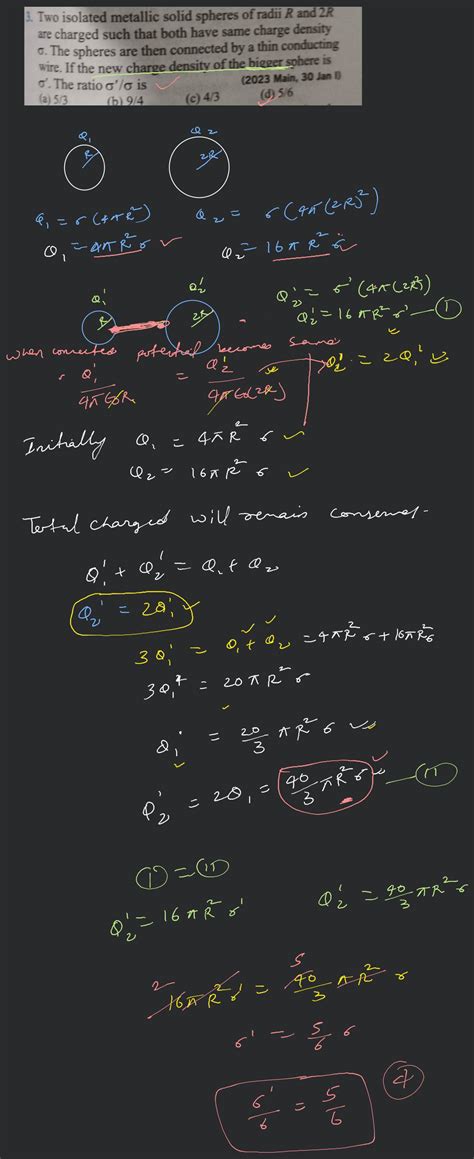 3. Two isolated metallic solid spheres of radii R and 2R
are charged such that both have same charge density
σ. The spheres are then connected by a thin conducting
wire. If the new charge density of the bigger sphere is
σ'. The ratio σ'/σ is (2023 Main, 30 Jan I)
(a) 5/3 (b) 9/4 (c) 4/3 (d) 5/6
Q₁ Q₂
R 2R
Q₁ = σ(4πR²) Q₂ = σ(4π(2R)²)
Q₁ = 4πR²σ Q₂ = 16πR²σ
Q₁' Q₂'
R 2R
Q₂' = σ'(4π(2R)²)
Q₂' = 16πR²σ' — I
When connected potential becomes same
Q₁'/4πε₀R = Q₂'/4πε₀(2R) Q₂' = 2Q₁'
Initially Q₁ = 4πR²σ
Q₂ = 16πR²σ
Total charged will remain conserved.
Q₁' + Q₂' = Q₁ + Q₂
Q₂' = 2Q₁'
3Q₁' = Q₁ + Q₂ = 4πR²σ + 16πR²σ
3Q₁' = 20πR²σ
Q₁' = 20/3 πR²σ
Q₂' = 2Q₁ = 40/3 πR²σ — II
I = II
Q₂' = 16πR²σ' Q₂' = 40/3 πR²σ
2 5
16πR²σ' = 40/3 πR²σ
σ' = 5/6 σ
σ'/σ = 5/6 d